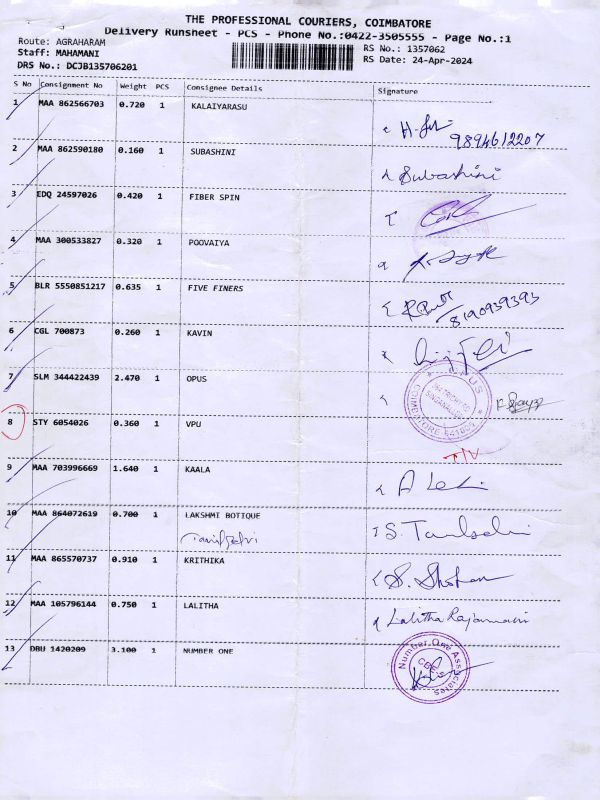 THE PROFESSIONAL COURIERS, COIMBATORE
Delivery Runsheet - PCS - Phone No.:0422-3505555 - Page No.:1
Route: AGRAHARAM
RS No.: 1357062
Staff: MAHAMANI
RS Date: 24-Apr-2024
DRS No.: DCJB135706201
S No Consignment No Weight PCS Consignee Details Signature
1 MAA 862566703 0.720 1 KALAIYARASU
9894612207
2 MAA 862590180 0.160 1 SUBASHINI
Subashini
3 EDQ 24597026 0.420 1 FIBER SPIN
4 MAA 300533827 0.320 1 POOVAIYA
5 BLR 5550851217 0.635 1 FIVE FINERS
8190939393
6 CGL 700873 0.260 1 KAVIN
7 SLM 344422439 2.470 1 OPUS
8 STY 6054026 0.360 1 VPU
9 MAA 703996669 1.640 1 KAALA
10 MAA 864072619 0.700 1 LAKSHMI BOTIQUE
11 MAA 865570737 0.910 1 KRITHIKA
12 MAA 105796144 0.750 1 LALITHA
Lalitha Rajamani
13 DBU 1420209 3.100 1 NUMBER ONE
Number One Associates
CBE